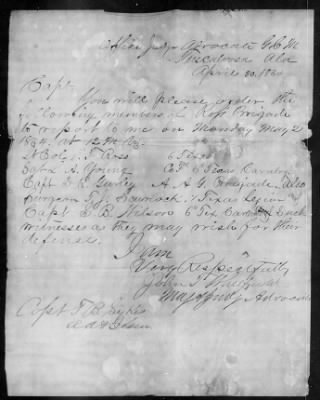 Office Judge Advocate G.C.M.
Tuscaloosa Ala
April 30, 1864
Capt.
You will please order the
following members of Ross Brigade
to report to me on Monday May 2
1864 at 12 M
Lt Col Ross 6 Texas
John A. Young Co F 6 Texas Cavalry
Capt D. R. Gurley A. A. G. Brigade, Also
Surgeon Scurlock, Texas Legion
Capt E. B. Nelson 6 Tex Cavalry & such
witnesses as they may wish for their
defense.
I am
Very Respectfully
John
Maj & Judge Advocate
Capt F. B. Sykes